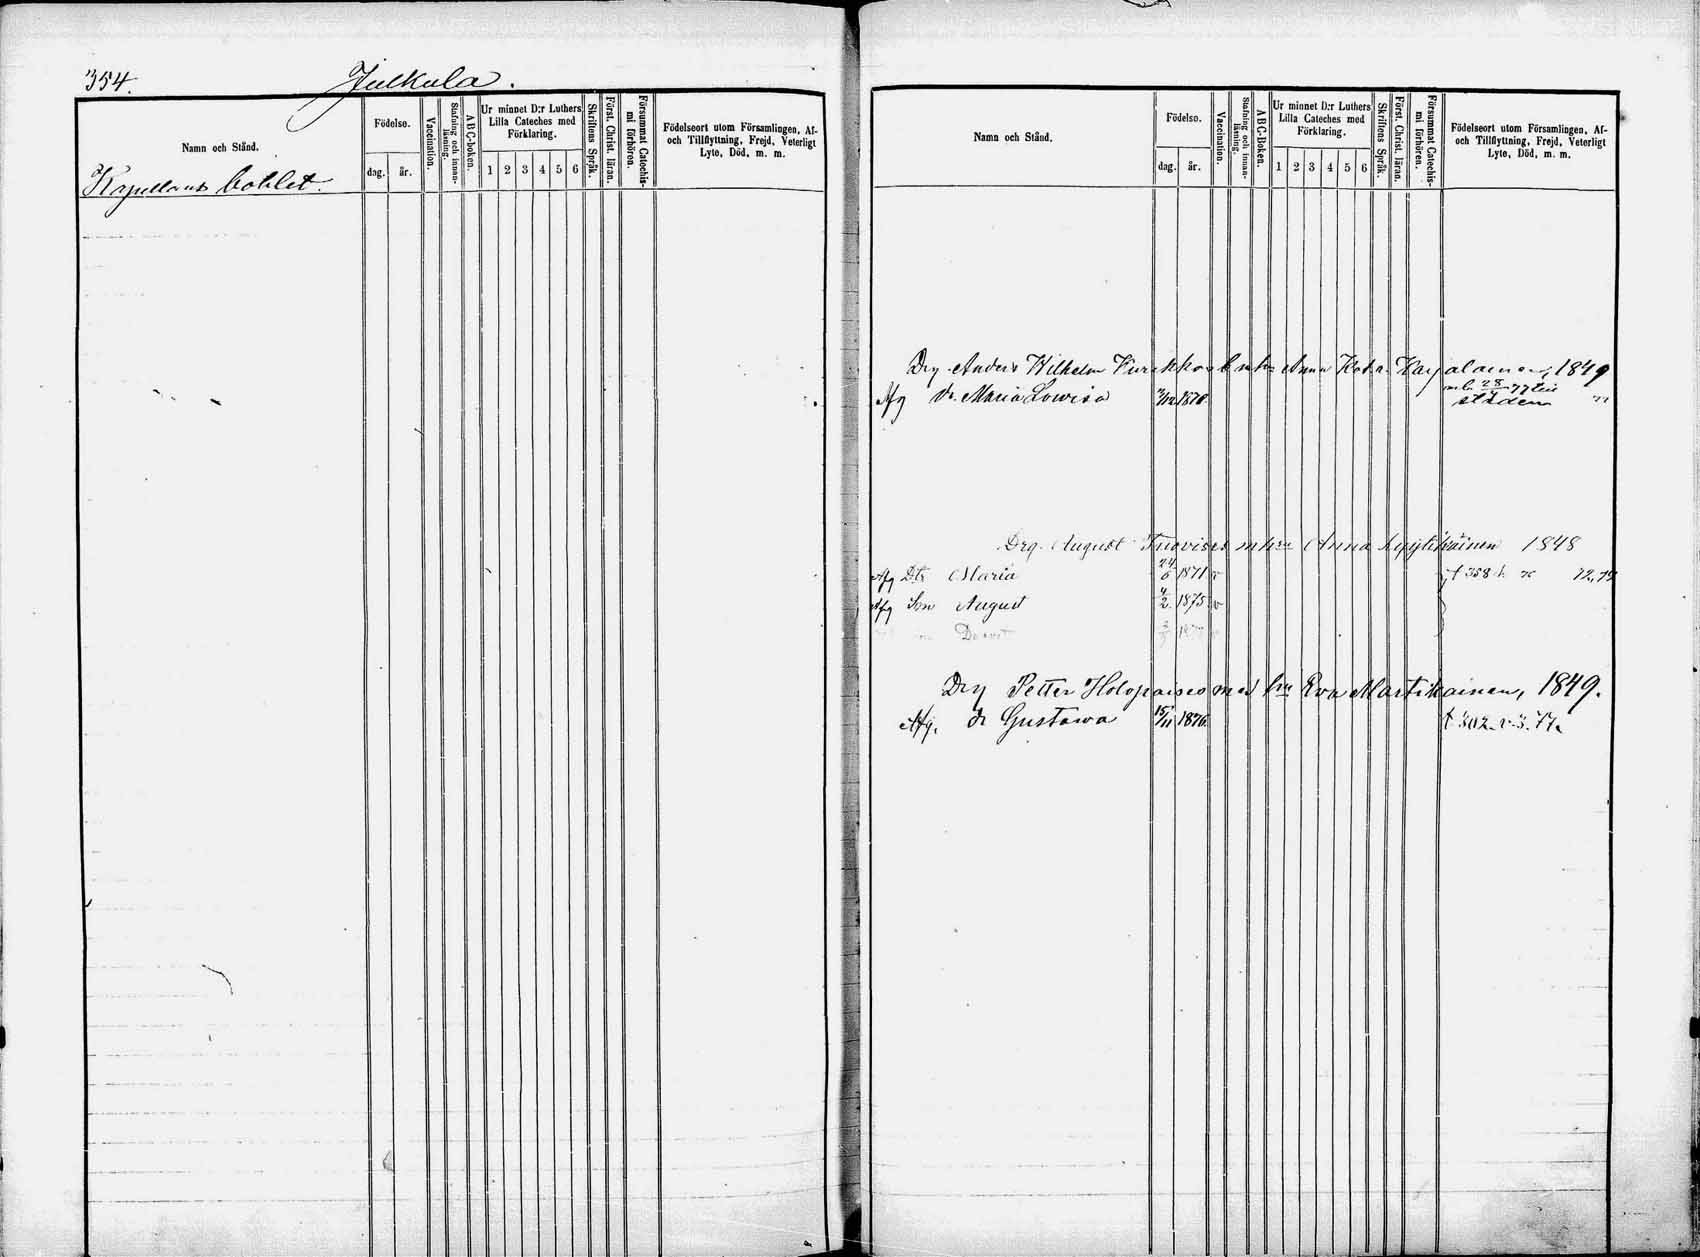 354. Julkula.
Namn och Stånd.
Kapellans bohlet.
Födelse.
dag. år.
Vaccination.
Stafning och innanläsning.
ABC-boken.
Ur minnet D:r Luthers
Lilla Cateches med
Förklaring.
1 2 3 4 5 6
Skriftens Språk.
Först. Christ. läran.
Försummat Catechismi förhören.
Födelseort utom Församlingen, Af-
och Tillflyttning, Frejd, Veterligt
Lyte, Död, m. m.
Namn och Stånd.
Födelse.
dag. år.
Vaccination.
Stafning och innanläsning.
ABC-Boken.
Ur minnet D:r Luthers
Lilla Cateches med
Förklaring.
1 2 3 4 5 6
Skriftens Språk.
Först. Christ. läran.
Försummat Catechismi förhören.
Födelseort utom Församlingen, Af-
och Tillflyttning, Frejd, Veterligt
Lyte, Död, m. m.
Drg Anders Wilhelm Anna Kat:a Karjalainen, 1849
28/4 77 till
Afg dr. Maria Lowisa 1876. staden "
Drg. August Tuovises m hru Anna 1848
Afg Dtr Maria 24/6 1871 v 358
Afg Son August 4/2 1875. v
Drg Petter Holopaises med hru Eva Martikainen, 1849.
Afg. dr Gustawa 15/11 1876. 302 77.